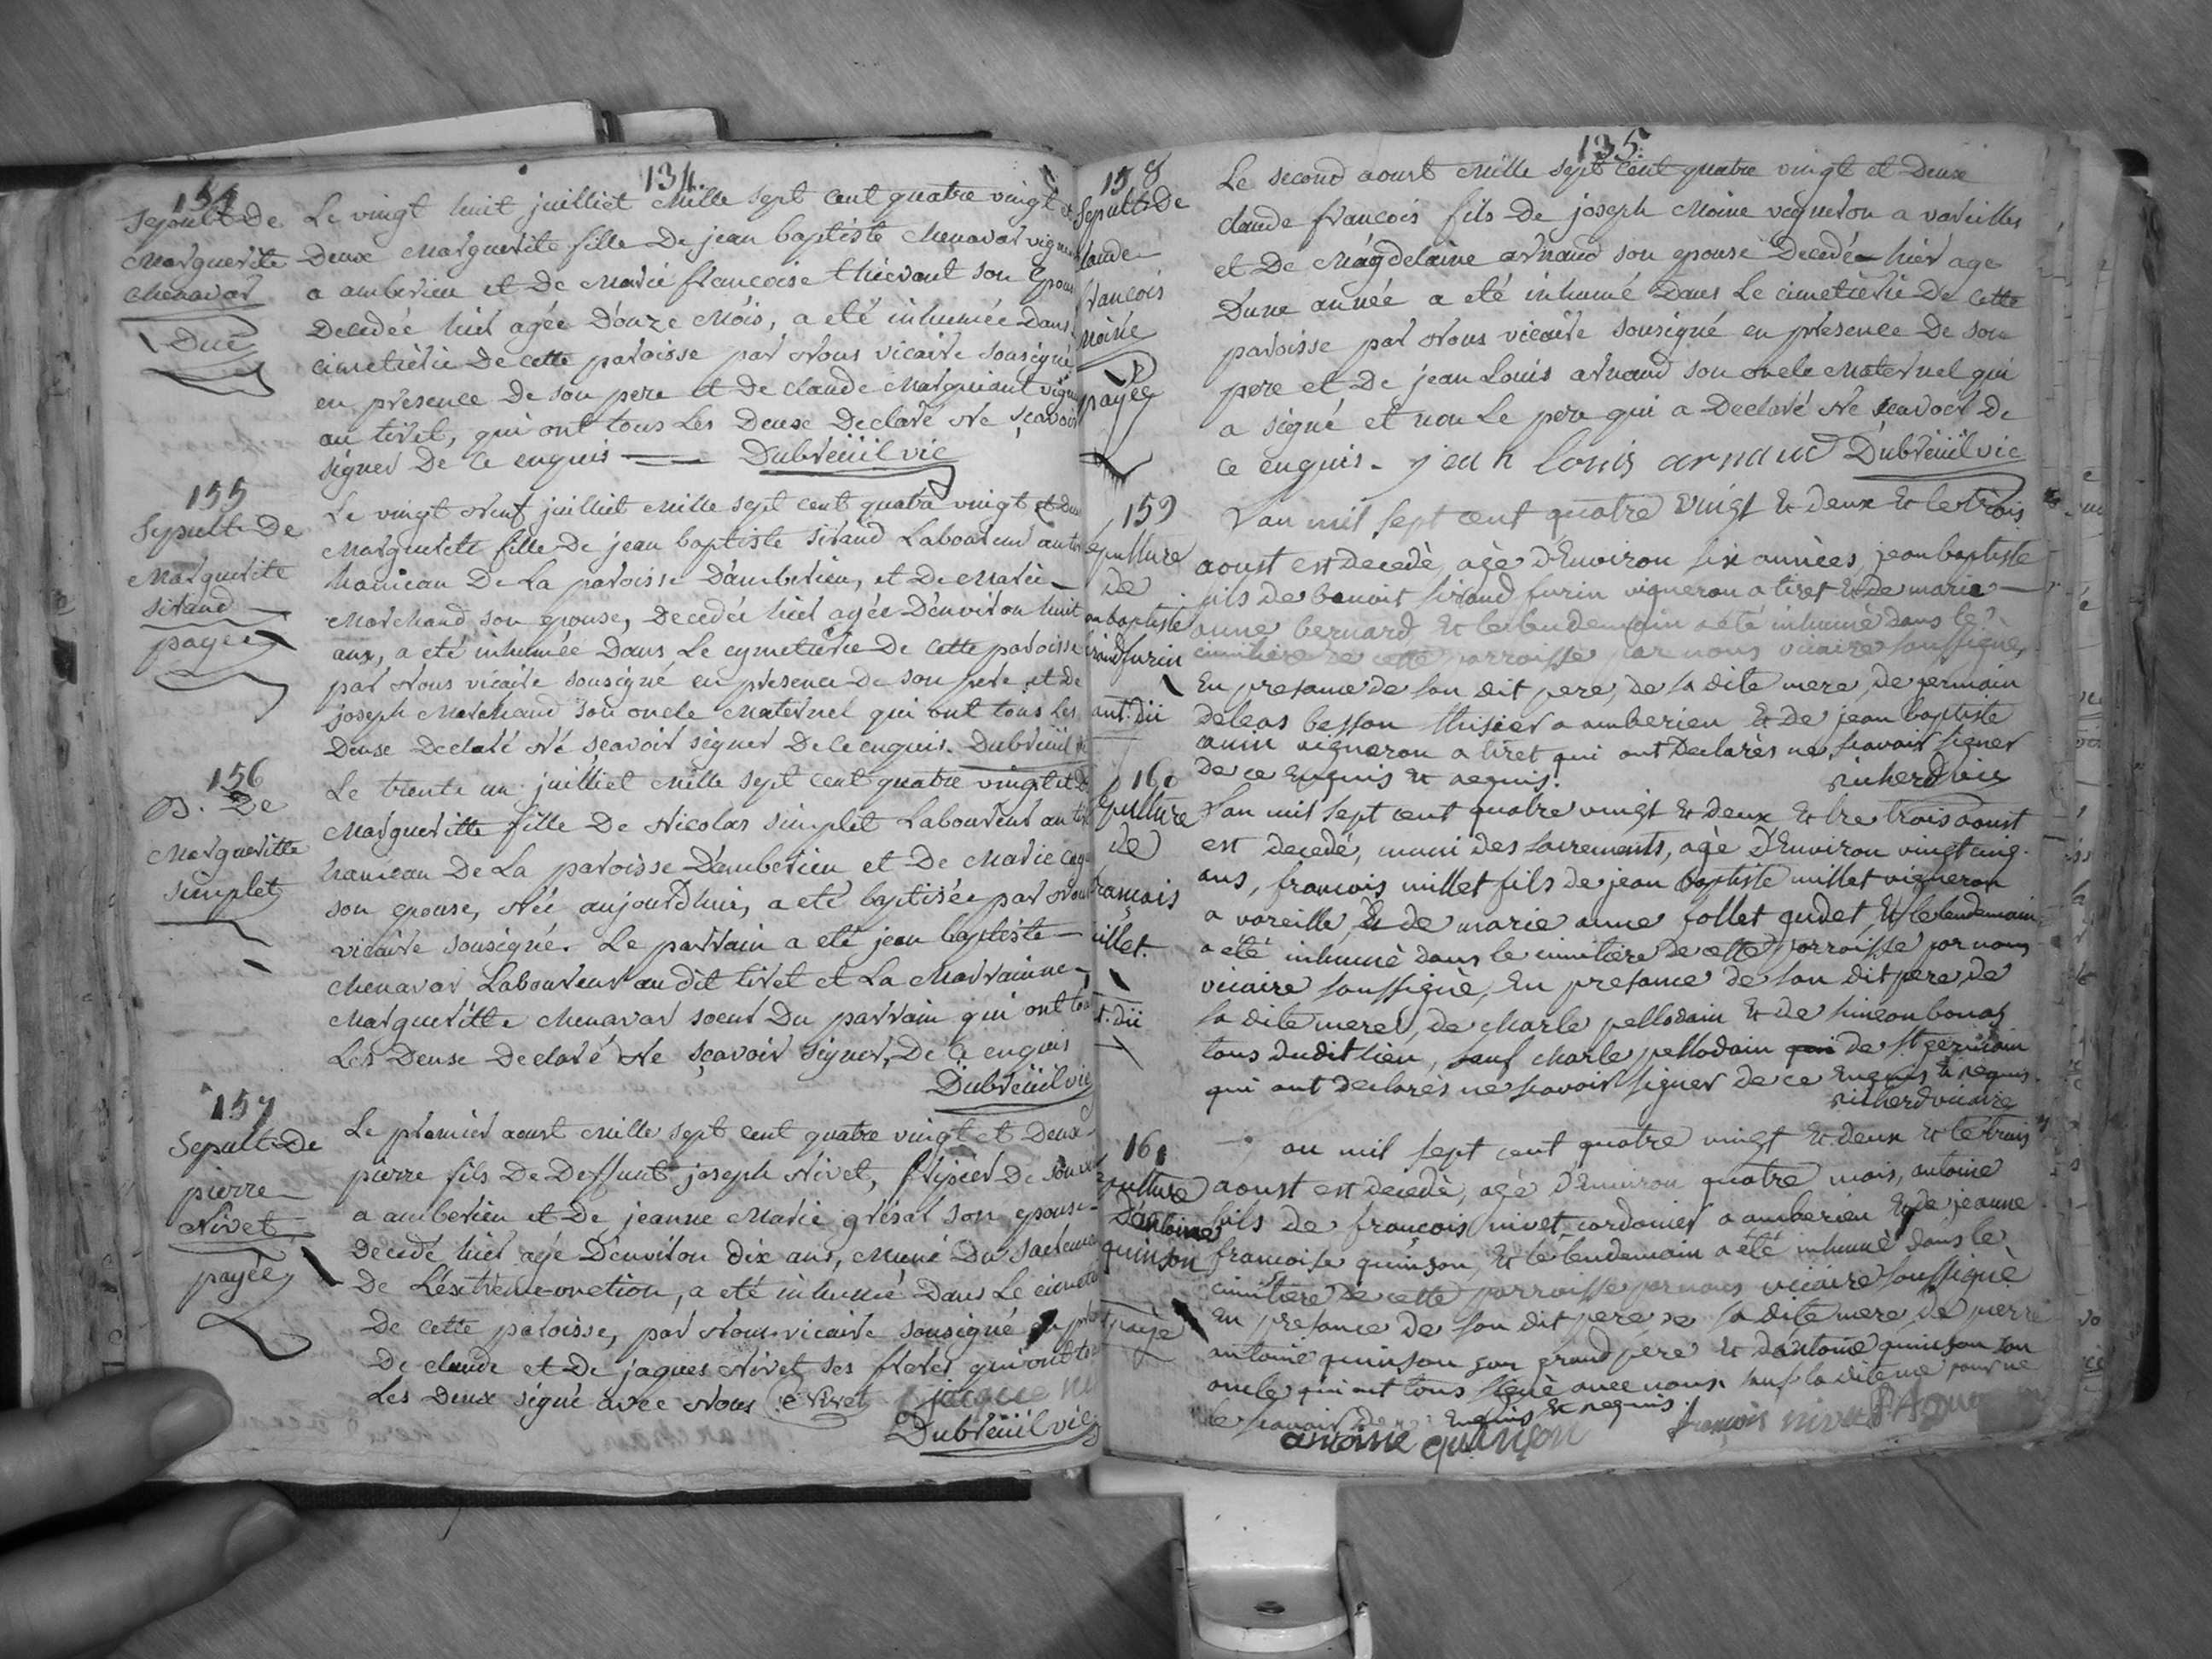 134.
154
Sepult. De
Marguerite
Chenavar
Due
Le vingt huit juilliet Mille sept cent quatre vingt et
Deux Marguerite fille De jean baptiste Chenavar
a amberieu et de Marie francoise thievant son
Decedée hier agée D'onze Mois, a eté inhumée Dans
cimetiérie De cette paroisse par Nous vicaire sousigné
en presence De son pere et de claude Marguiant
au tiret, qui ont tous Les Deuse Declaré Ne sçavoir
signer De Ce enquis Dubreüil vic
155
Sepult. De
Marguerite
sirand
payée
Le vingt Neuf juilliet Mille sept cent quatre vingt et
Marguerite fille De jean baptiste sirand Laboureur au
hameau De La paroisse D'amberieu, et De Marie
Marchand son epouse, Decedée hier agée D'environ huit
ans, a eté inhumée Dans Le cymetiérie De cette paroisse
par Nous vicaire sousigné en presence De son pere et De
joseph Marchand son oncle Maternel qui ont tous Les
Deuse Declaré Né scavoir signer De Ce enquis. Dubreüil
156
B. De
Margueritte
simplet
Le trente un juilliet Mille sept cent quatre vingt et
Margueritte fille De Nicolas simplet Laboureur au
hameau De La paroisse D'amberieu et De Marie
son epouse, Née aujourd'hui, a eté baptisée par Nous
vicaire sousigné. Le parrain a eté jean baptiste
Chenavar Laboureur audit tiret et La Marrainne
Margueritte Chenavar soeur Du parrain qui ont
Les Deuse Declaré Ne sçavoir signer, De Ce enquis
Dubreüil vic
157
Sepult. De
pierre
Nivet
payée
Le premier aoust Mille sept cent quatre vingt et Deux
pierre fils De Deffunt joseph Nivet, fripier De
a amberieu et De jeanne Marie grisat son epouse
Decedé hier agé D'environ Dix ans, Muni Du
De L'extreme onction, a eté inhumé Dans Le
De cette paroisse, par Nous vicaire sousigné
De claude et De jaques Nivet ses freres qui ont
Les Deux signé avec Nous C Nivet jacque
Dubreüil vic
135.
158
Sepult. De
laude
rancois
moine
payée
Le second aoust Mille sept cent quatre vingt et Deux
claude francois fils De joseph Moine vigneron a vareilles
et De Magdelaine arnaud son epouse Decedée hier age
D'une année a eté inhumé Dans Le cimetiérie De cette
paroisse par Nous vicaire sousigné en presence De son
pere et De jean Louis arnaud son oncle Maternel qui
a signé et non Le pere qui a Declaré Ne scavoir De
ce enquis. jean louis arnaud Dubreüil vic
159
epulture
de
an baptiste
sirand furin
ant. dü
L'an mil sept cent quatre vingt & deux & le trois
aoust est decedè, agè d'Environ six années, jean baptiste
fils de benoit sirand furin vigneron a tiret & de marie
anne bernard & le lendemain a été inhumè dans le
cimitière de cette parroisse par nous vicaire soussigné,
En presance de son dit pere, de sa dite mere, de germain
deleas besson thisier a amberieu & de jean baptiste
vigneron a tiret qui ont declarès ne scavoir signer
de ce enquis & requis. richerd vic
160
epulture
de
rancois
illet.
t. dü
L'an mil sept cent quatre vingt & deux & le trois aoust
est decedè, muni des sacrements, agè d'Environ vingt cinq
ans, francois millet fils de jean baptiste millet vigneron
a vareille, & de marie anne follet gudet, & le lendemain
a été inhumè dans le cimitière de cette parroisse par nous
vicaire soussignè, En presance de son dit pere, de
sa dite mere, de charle pellodain & de simeon bonaz
tous dudit lieu, sauf charle pellodain de st germain
qui ont declarès ne scavoir signer de ce Enquis & requis.
richerd vicaire
161
epulture
d'antoine
quinson
payé
an mil sept cent quatre vingt & deux & le trois
aoust est decedè, agè d'Environ quatre mois, antoine
fils de françois nivet cordonier a amberieu & de jeanne
francoise quinson, & le lendemain a été inhumè dans le
cimitière de cette parroisse par nous vicaire soussignè
En presance de son dit pere, de sa dite mere de pierre
antoine quinson son grand pere & d'antoine quinson son
oncle qui ont tous signè avec nous, sauf la dite me pour ne
le scavoir de Enquis & requis.
antoine quinson françois nivet